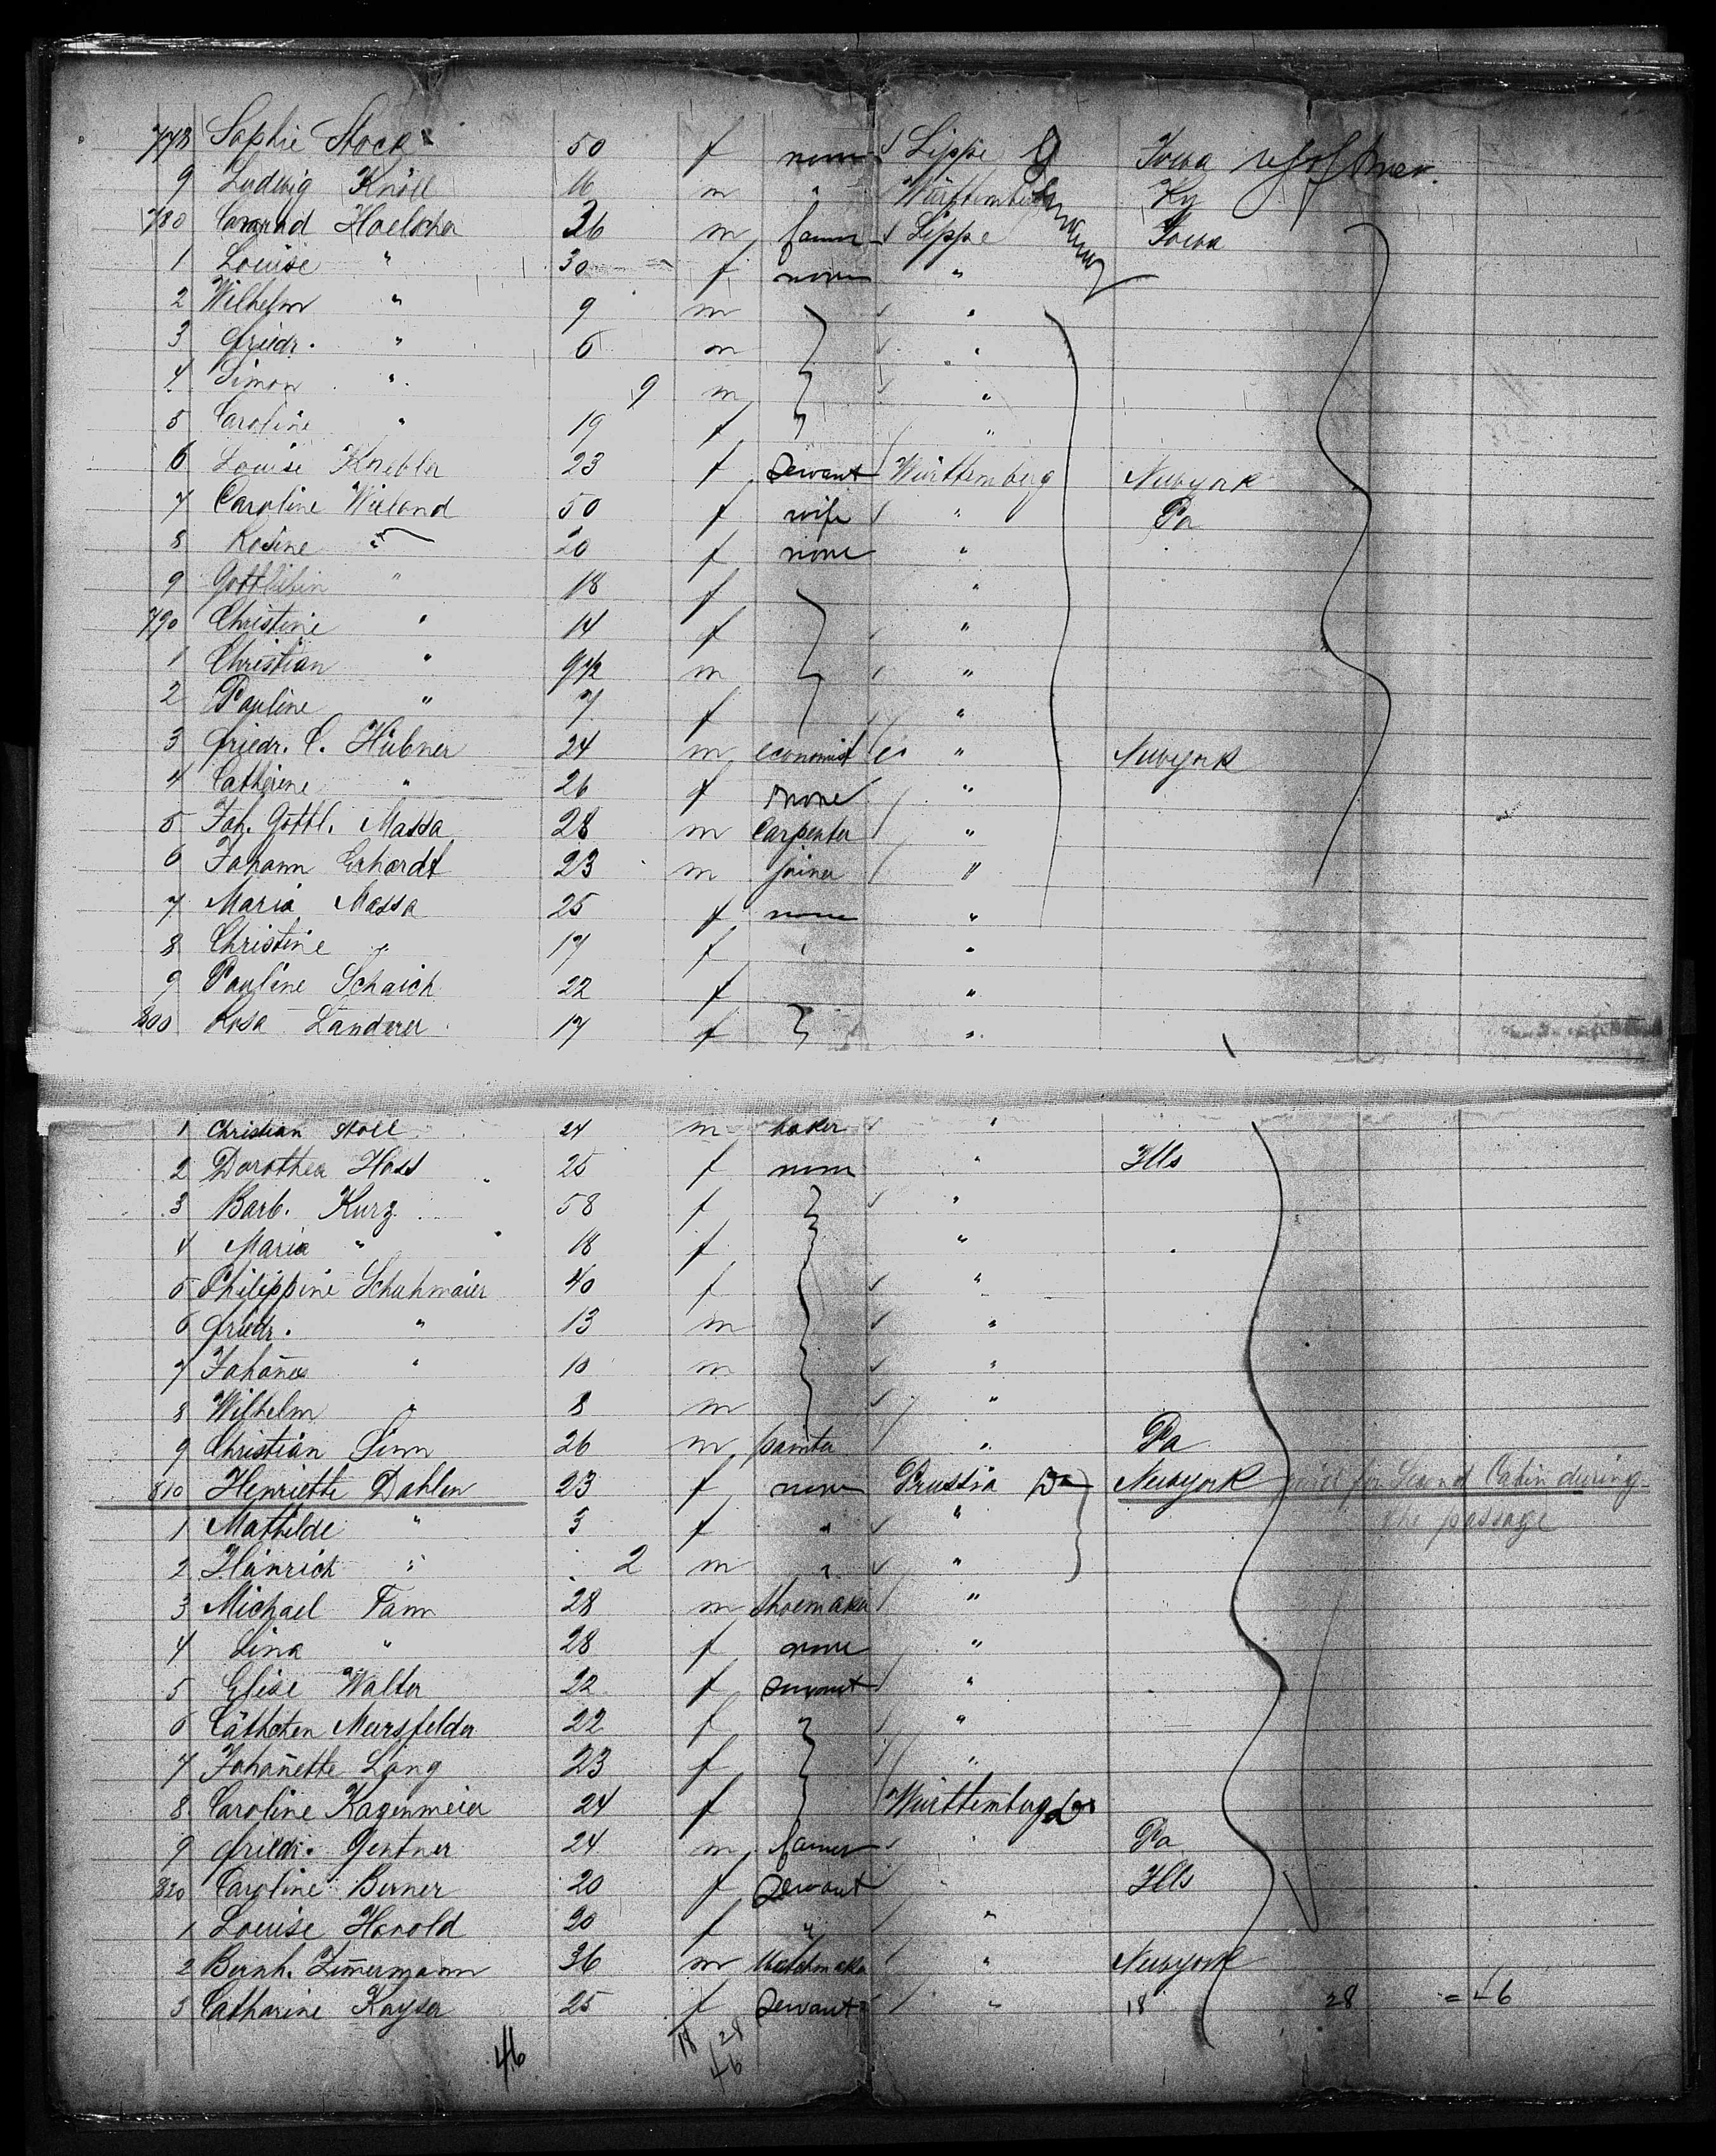 778 Sophie Stock 50 f none Lippe Iowa
9 Ludwig Knöll 16 m " Württemberg Germany Ky
780 Conrad Hoelscher 36 m farmer Lippe Iowa
1 Louise " 30 f none "
2 Wilhelm " 9 m "
3 Friedr. " 6 m "
4 Simon " 9 m "
5 Caroline " 19 f "
6 Louise Knebler 23 f servant Württemberg Newyork
7 Caroline Wieland 50 f wife " Pa
8 Rosine " 20 f none "
9 Gottliebin " 18 f "
790 Christine " 14 f "
1 Christian " 9 1/2 m "
2 Pauline " 7 f "
3 Friedr. C. Hübner 24 m economist " Newyork
4 Catherine " 26 f none "
5 Joh. Gottl. Massa 28 m Carpenter "
6 Johann Erhardt 23 m joiner "
7 Maria Massa 25 f none "
8 Christine " 17 f " "
9 Pauline Schaich 22 f "
800 Rosa Landerer 17 f "
1 Christian Stoll 24 m baker "
2 Dorothea Hass 25 f none " Ills
3 Barb. Kurz 58 f "
4 Maria " 18 f "
5 Philippine Schuhmaier 40 f "
6 Friedr. " 13 m "
7 Johañes " 10 m "
8 Wilhelm " 8 m "
9 Christian Sinn 26 m painter " Pa
810 Henriette Dahlen 23 f none Prussia Newyork paid for Second Cabin during
the passage
1 Mathilde " 3 f " "
2 Heinrich " 2 m " "
3 Michael Fann 28 m shoemaker "
4 Lina " 28 f none "
5 Elise Walter 22 f servant "
6 Käthchen Meersfelder 22 f " "
7 Johañette Lang 23 f "
8 Caroline Kagenmeier 24 f Württemberg
9 Friedr. Gentner 24 m farmer " Pa
820 Caroline Berner 20 f Servant " Ills
1 Louise Harold 20 f " "
2 Bernh. Zim̄ermann 36 m Watchmaker " Newyork
3 Catharine Kayser 25 f Servant " 18 28 = 46
46 18 28
46